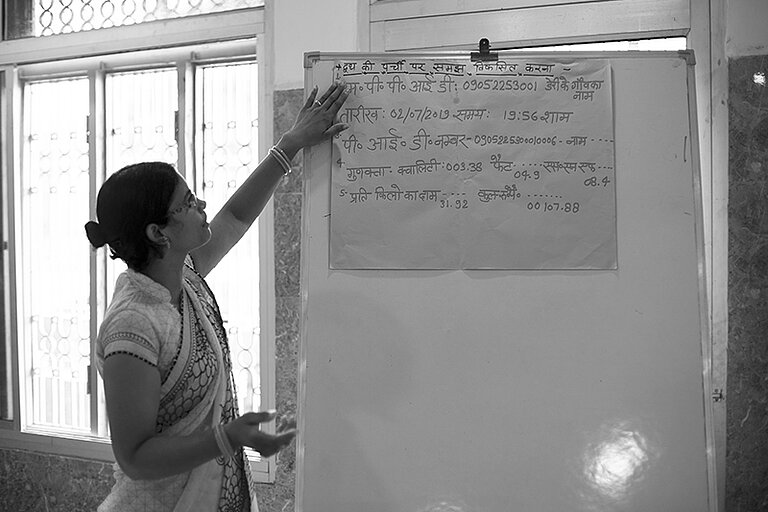 * दूध की पर्ची पर समझ विकसित करना -
एम॰ पी॰ पी॰ आई डी: 09052253001 डेरी के गाँव का नाम
तारीख: 02/07/2019 समय: 19:56 शाम
पी॰ आई॰ डी॰ नम्बर - 090522530010006 - नाम ....
4. गुणवत्ता - क्वालिटी: 003.38 फैट .... 04.9 एस॰एन॰एफ .... 08.4
5 - प्रति किलो का दाम .... 31.92 कुल रूपये ....... 00107.88